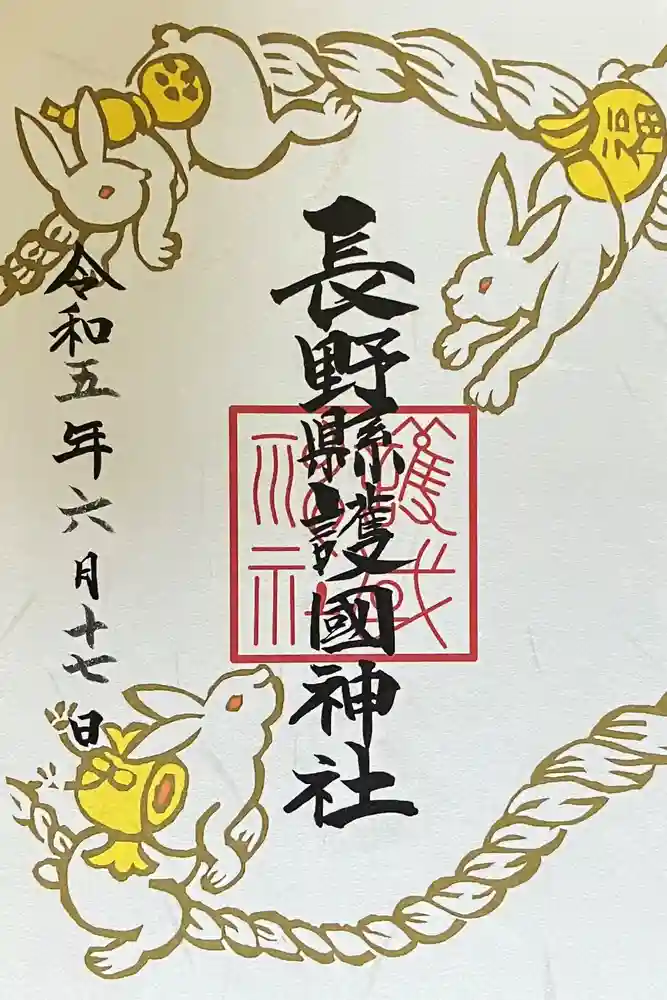 福
長野縣護國神社
令和五年六月十七日